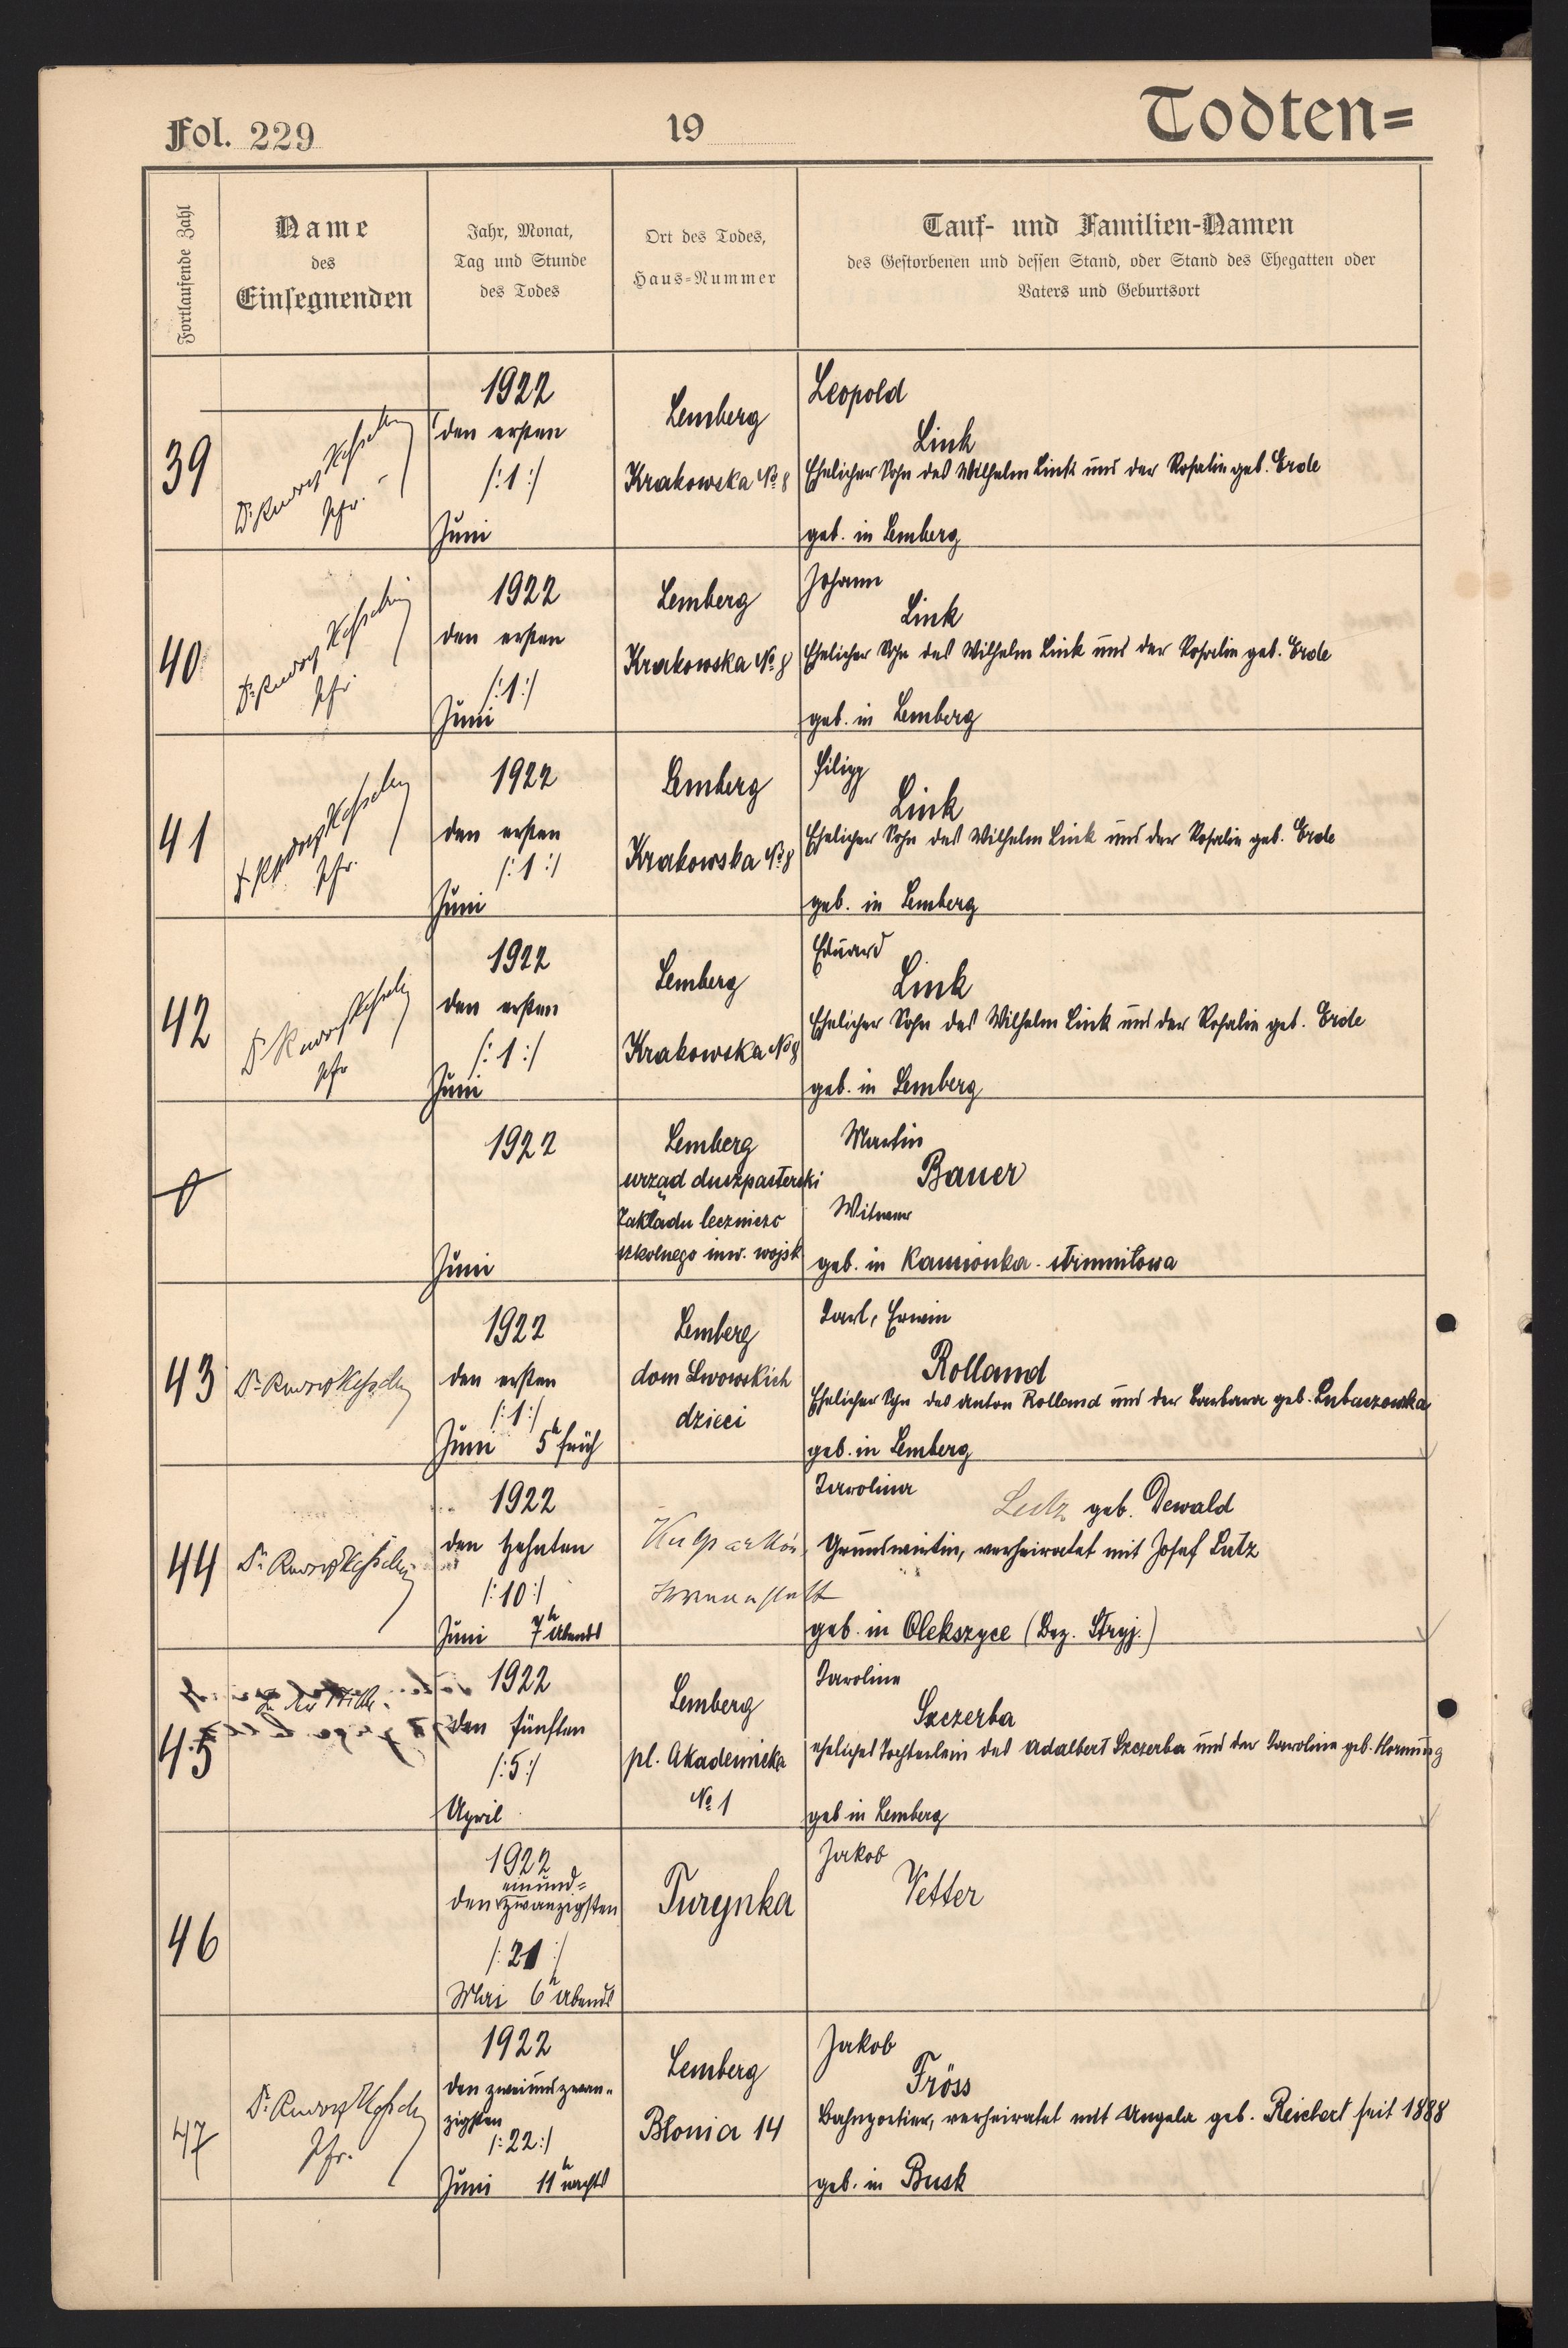 Fol. 229
19
Todten=
Fortlaufende Zahl
Name
des
Einsegnenden
Jahr, Monat,
Tag und Stunde
des Todes
Ort des Todes,
Haus-Nummer
Tauf- und Familien-Namen
des Gestorbenen und dessen Stand, oder Stand des Ehegatten oder
Vaters und Geburtsort
39
Dr. Kesselring
Pfr.
1922
den ersten
/:1:/
Juni
Lemberg
Krakowska No 8
Leopold
Link
Ehelicher Sohn des Wilhelm Link und der Rosalie geb. Erde
geb. in Lemberg
40
Dr. Kesselring
Pfr.
1922
den ersten
/:1:/
Juni
Lemberg
Krakowska No 8
Johann
Link
Ehelicher Sohn des Wilhelm Link und der Rosalie geb. Erde
geb. in Lemberg
41
Kesselring
Pfr.
1922
den ersten
/:1:/
Juni
Lemberg
Krakowska No 8
Filipp
Link
Ehelicher Sohn des Wilhelm Link und der Rosalie geb. Erde
geb. in Lemberg
42
Dr. Kesselring
Pfr
1922
den ersten
/:1:/
Juni
Lemberg
Krakowska No 8
Eduard
Link
Ehelicher Sohn des Wilhelm Link und der Rosalie geb. Erde
geb. in Lemberg
1922
Juni
Lemberg
urząd duszpasterski
Zakładu leczniczo
szkolnego inw. wojsk
Martin
Bauer
Witwer
geb. in Kamionka-strumiłowa
43
Dr. Kesselring
1922
den ersten
/:1:/
Juni 5h früh
Lemberg
dom Lwowskich
dzieci
Karl, Erwin
Rolland
Ehelicher Sohn des Anton Rolland und der Barbara geb. Lubaczewska
geb. in Lemberg
44
Dr. Kesselring
1922
den zehnten
/:10:/
Juni 7h abends
Kulparków
Irrenanstalt
Karolina
Lutz geb. Dewald
Grundwirtin, verheiratet mit Josef Lutz
geb. in Olekszyce (Bez. Stryj.)
45
1922
den fünften
/:5:/
April
Lemberg
pl. Akademicka
No 1
Karoline
Szczerba
eheliches Töchterlein des Adalbert Szczerba und der Karoline geb. Hornung
geb in Lemberg
46
1922
einund=
den zwanzigsten
/:21:/
Mai 6h abends
Turynka
Jakob
Vetter
47
Dr. Kesselring
Pfr.
1922
den zweiundzwan-
zigsten
/:22:/
Juni 11h nachts
Lemberg
Błonia 14
Jakob
Fröss
Bahnportier, verheiratet mit Angela geb. Reichert seit 1888
geb. in Busk